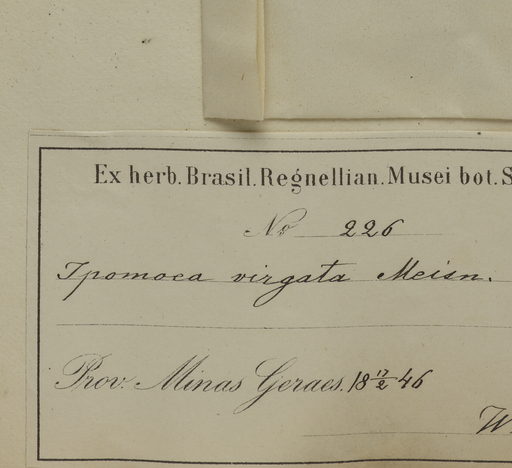 Ex herb. Brasil. Regnellian. Musei bot. S
No 226
Ipomoea virgata Meisn.
Prov. Minas Geraes. 18 17/2 46
W.